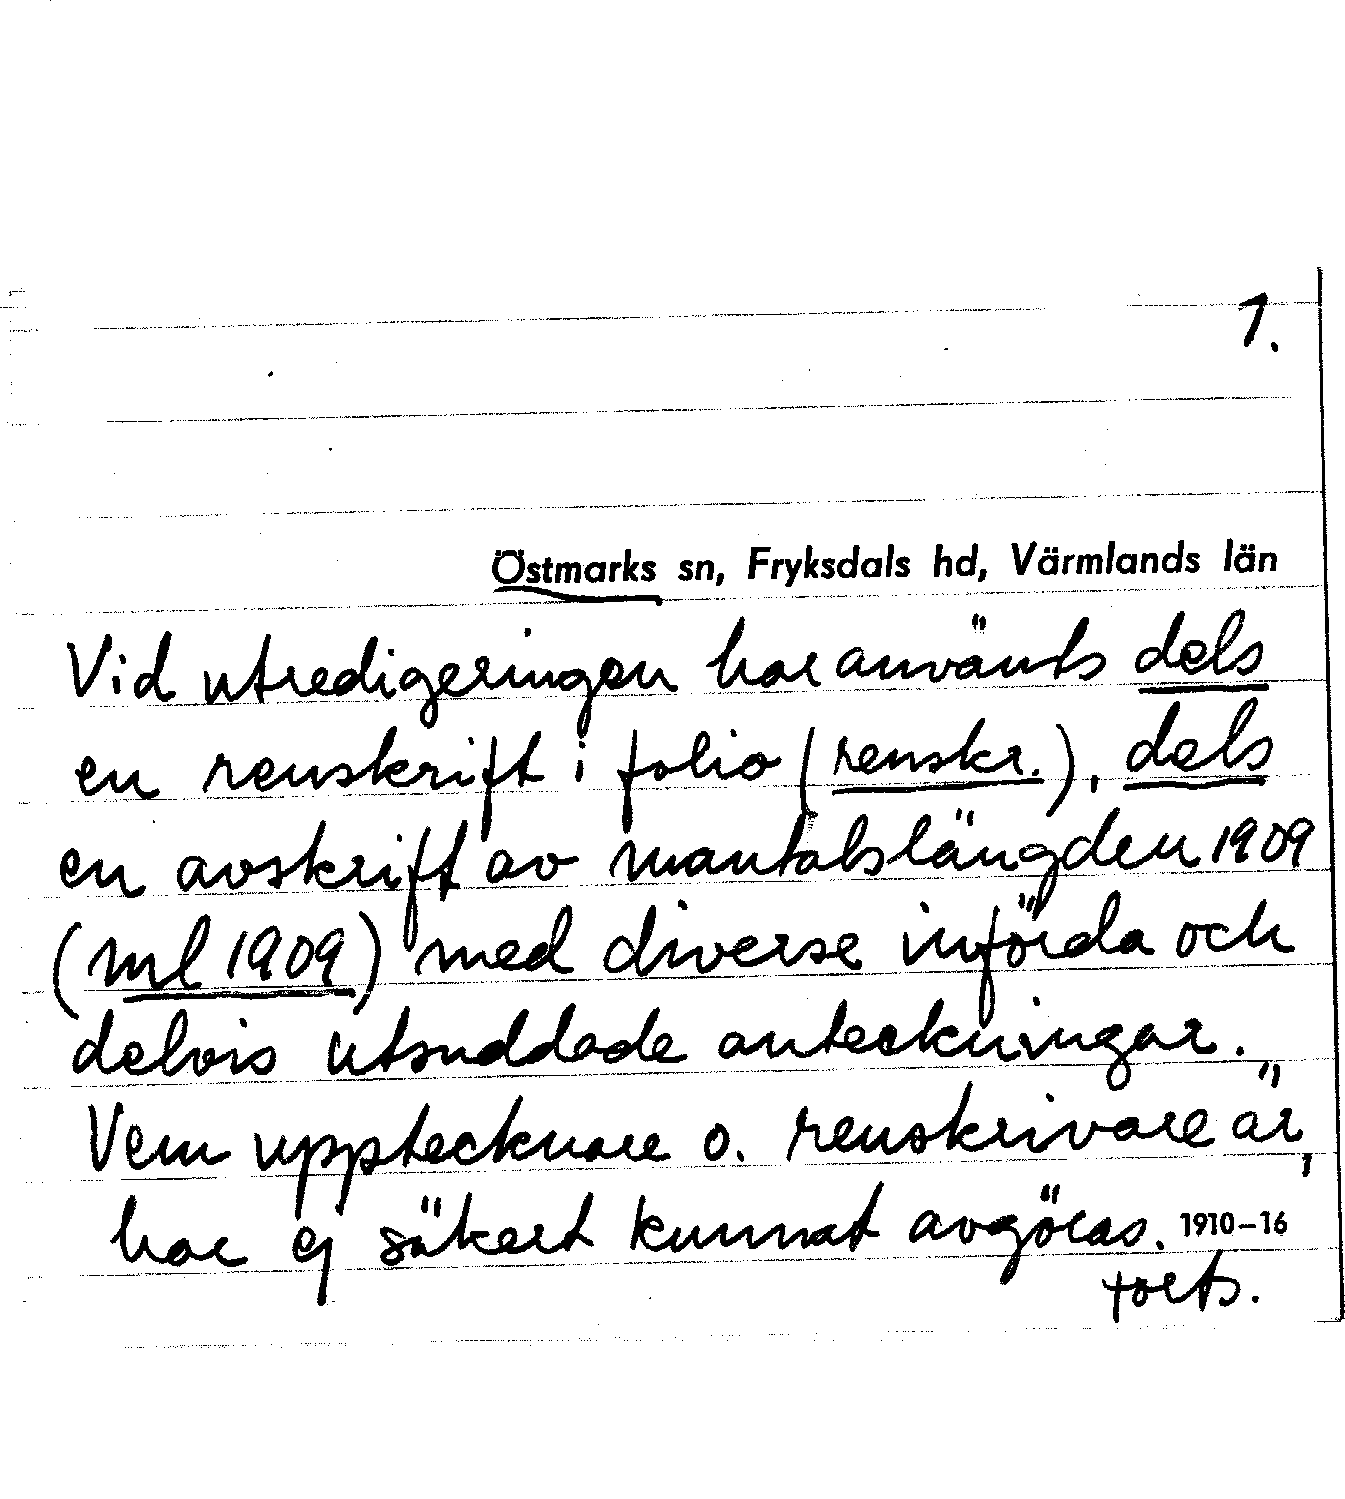 1.
Östmarks sn, Fryksdals hd, Värmlands län
Vid utredigeringen har använts dels
en renskrift i folio (renskr.), dels
en avskrift av mantalslängden 1909
(ml 1909) med diverse införda och
delvis utsuddade anteckningar.
Vem upptecknare o. renskrivare är,
har ej säkert kunnat avgöras. 1910-16
forts.